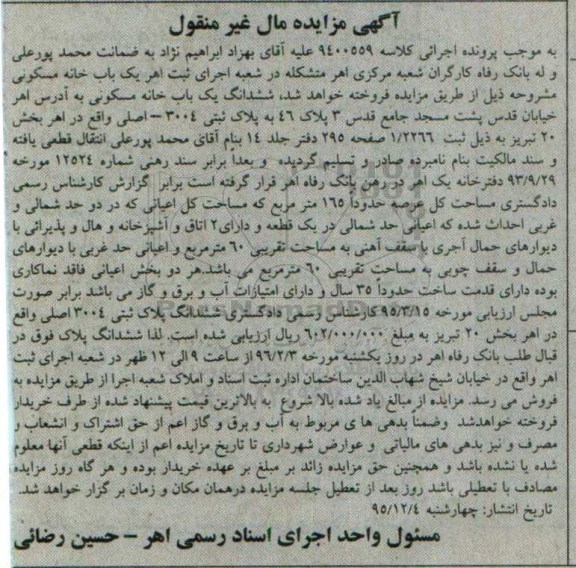 آگهی مزایده مال غیر منقول
به موجب پرونده اجرائی کلاسه ۹۴۰۰۵۵۹ علیه آقای بهزاد ابراهیم نژاد به ضمانت محمد پورعلی
و له بانک رفاه کارگران شعبه مرکزی اهر متشکله در شعبه اجرای ثبت اهر یک باب خانه مسکونی
مشروحه ذیل از طریق مزایده فروخته خواهد شد، ششدانگ یک باب خانه مسکونی به آدرس اهر
خیابان قدس پشت مسجد جامع قدس ۳ پلاک ۴۶ به پلاک ثبتی ۳۰۰۴ – اصلی واقع در اهر بخش
۲۰ تبریز به ذیل ثبت ۱/۲۲۶۶ صفحه ۲۹۵ دفتر جلد ۱۴ بنام آقای محمد پورعلی انتقال قطعی یافته
و سند مالکیت بنام نامبرده صادر و تسلیم گردیده و بعداً برابر سند رهنی شماره ۱۲۵۲۴ مورخه
۹۳/۹/۲۹ دفترخانه یک اهر در رهن بانک رفاه اهر قرار گرفته است برابر گزارش کارشناس رسمی
دادگستری مساحت کل عرصه حدوداً ۱۶۵ متر مربع که مساحت کل اعیانی که در دو حد شمالی و
غربی احداث شده که اعیانی حد شمالی در یک قطعه و دارای۲ اتاق و آشپزخانه و هال و پذیرائی با
دیوارهای حمال آجری با سقف آهنی به مساحت تقریبی ۶۰ مترمربع و اعیانی حد غربی با دیوارهای
حمال و سقف چوبی به مساحت تقریبی ۶۰ مترمربع می باشد.هر دو بخش اعیانی فاقد نماکاری
بوده دارای قدمت ساخت حدوداً ۳۵ سال و دارای امتیازات آب و برق و گاز می باشد برابر صورت
مجلس ارزیابی مورخه ۹۵/۳/۱۵ کارشناس رسمی دادگستری ششدانگ پلاک ثبتی ۳۰۰۴ اصلی واقع
در اهر بخش ۲۰ تبریز به مبلغ ۶۰۲/۰۰۰/۰۰۰ ریال ارزیابی شده است. لذا ششدانگ پلاک فوق در
قبال طلب بانک رفاه اهر در روز یکشنبه مورخه ۹۶/۲/۳ از ساعت ۹ الی ۱۲ ظهر در شعبه اجرای ثبت
اهر واقع در خیابان شیخ شهاب الدین ساختمان اداره ثبت اسناد و املاک شعبه اجرا از طریق مزایده به
فروش می رسد. مزایده از مبالغ یاد شده بالا شروع به بالاترین قیمت پیشنهاد شده از طرف خریدار
فروخته خواهدشد وضمناً بدهی ها ی مربوط به آب و برق و گاز اعم از حق اشتراک و انشعاب و
مصرف و نیز بدهی های مالیاتی و عوارض شهرداری تا تاریخ مزایده اعم از اینکه قطعی آنها معلوم
شده یا نشده باشد و همچنین حق مزایده زائد بر مبلغ بر عهده خریدار بوده و هر گاه روز مزایده
مصادف با تعطیلی باشد روز بعد از تعطیل جلسه مزایده درهمان مکان و زمان بر گزار خواهد شد.
تاریخ انتشار: چهارشنبه ۹۵/۱۲/۴
مسئول واحد اجرای اسناد رسمی اهر – حسین رضائی